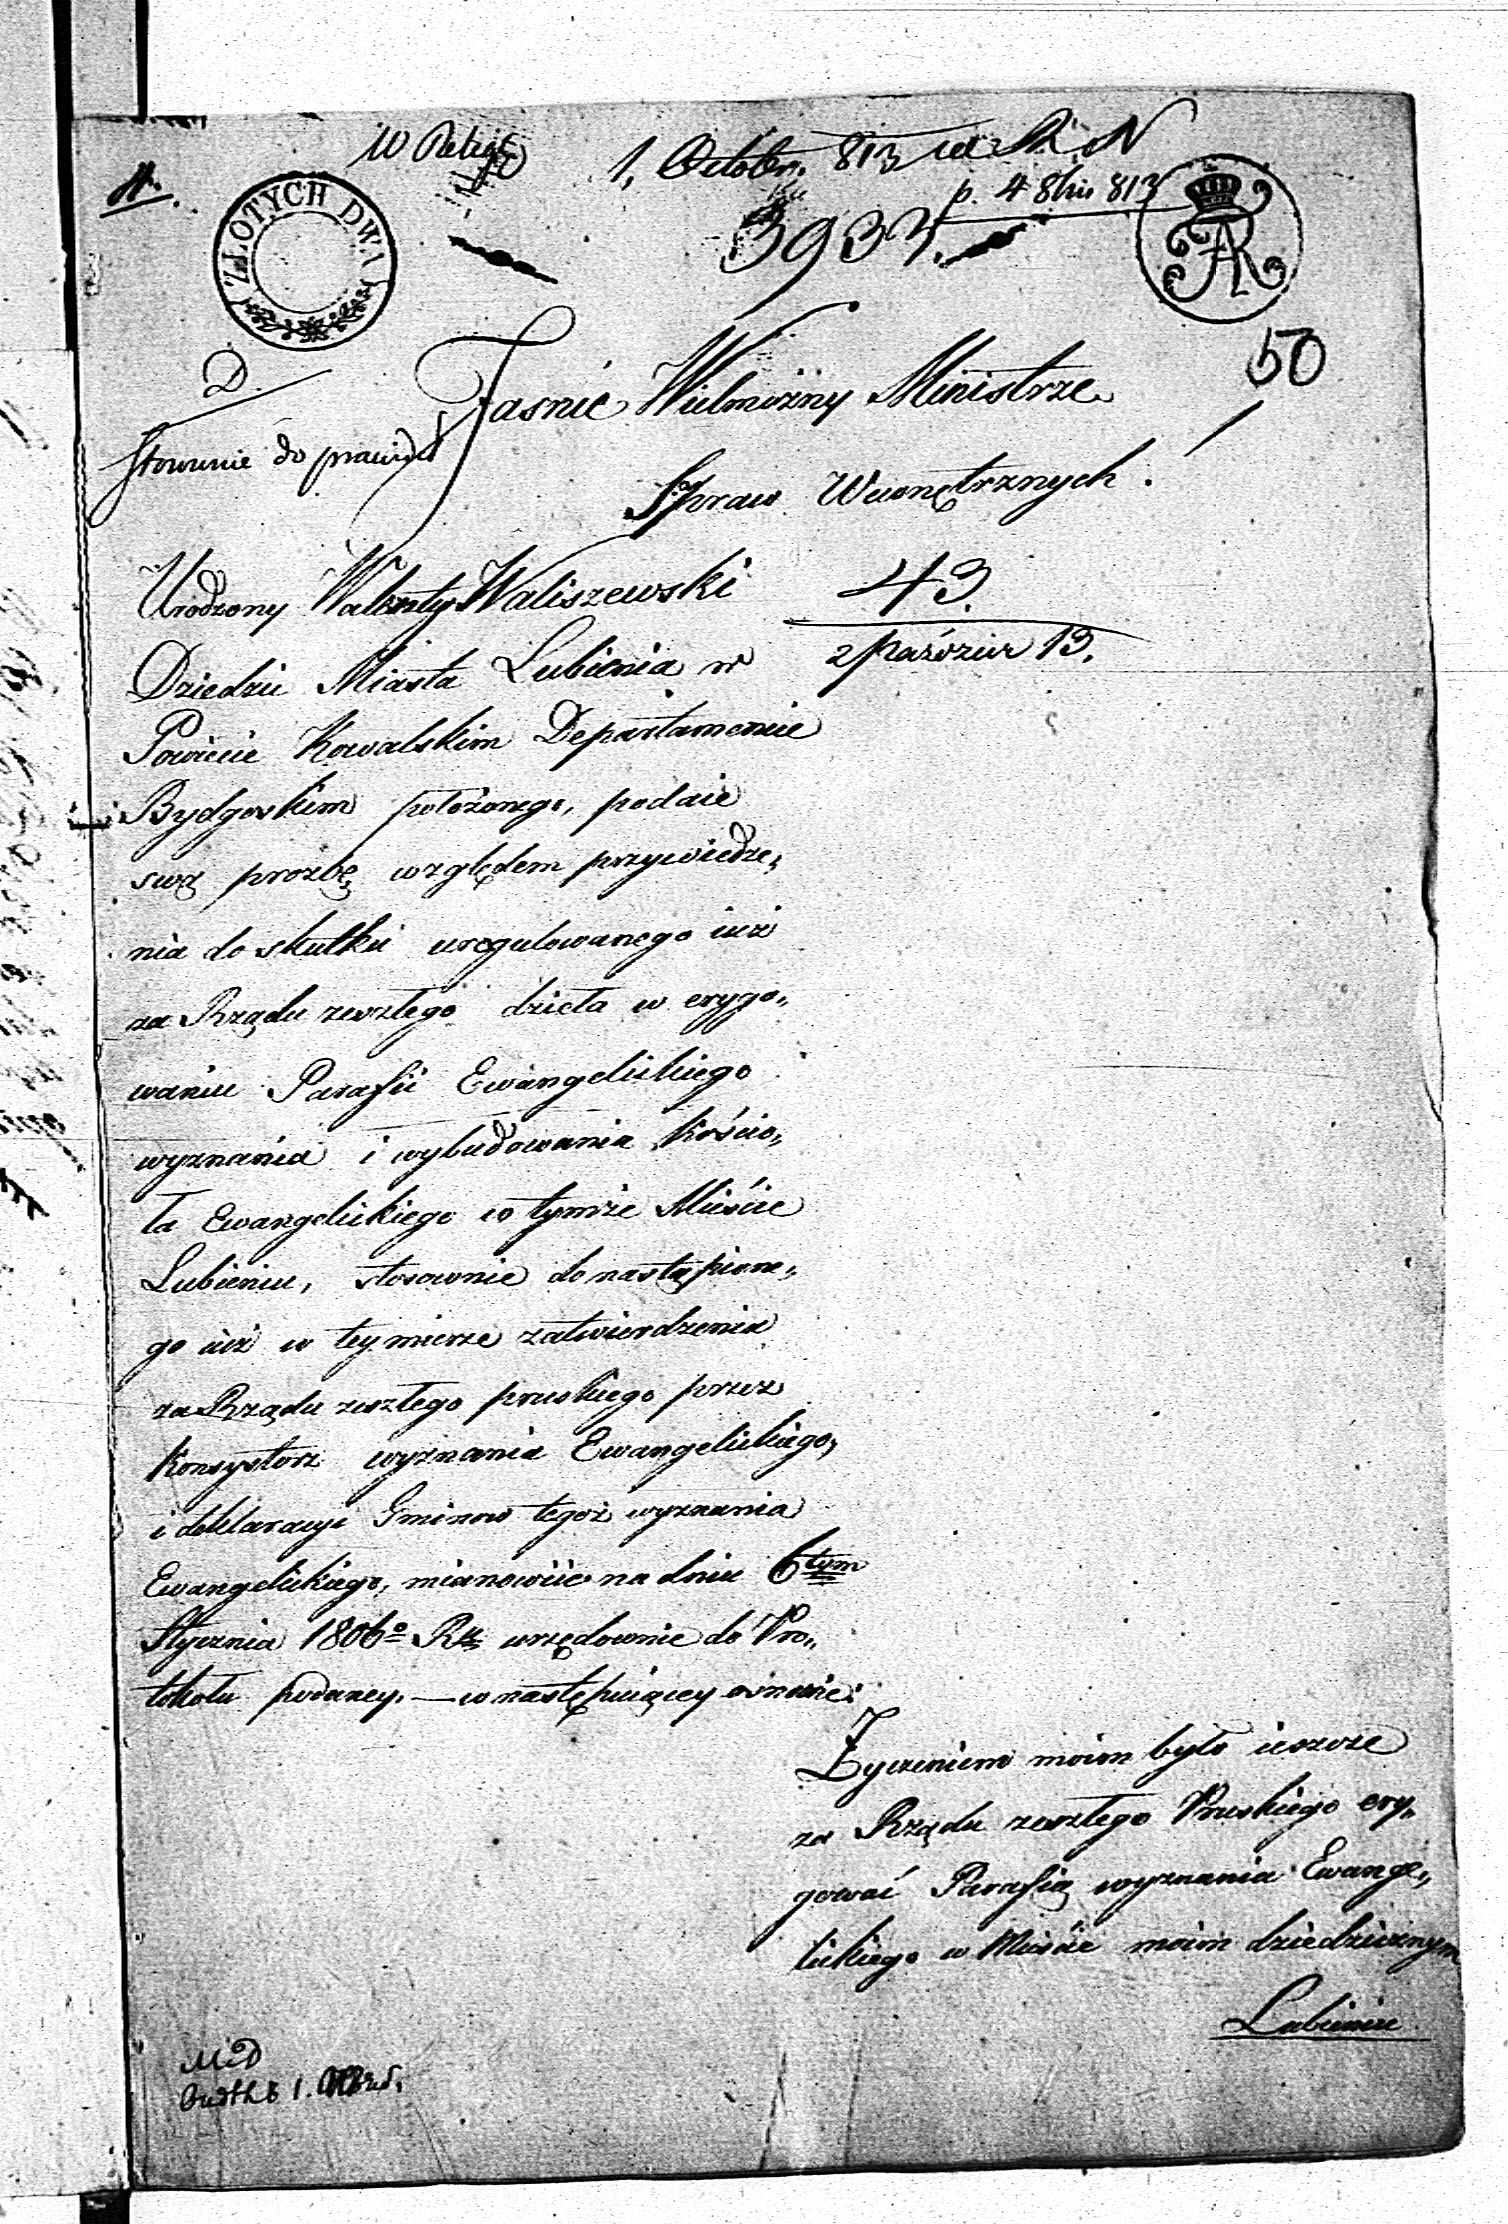 W Relig
1. Octobr. 813
p. 4 8bris 813
3933.
ZŁOTYCH DWA
50
D.
Jaśnie Wielmożny Ministrze
Stosownie do prawideł
Spraw Wewnętrznych!
Urodzony Walenty Waliszewski
43.
Dziedzic Miasta Lubienia w
2 Paździer 13.
Powiecie Kowalskim Departamencie
Bydgoskim położonego, podaie
swą prozbę względem przywiedze„
nia do skutku uregulowanego iuż
za Rządu zeszłego dzieła w erygo„
waniu Parafii Ewangelickiego
wyznania i wybudowania Kościo„
ła Ewangelickiego w tymże Mieście
Lubieniu, stosownie do nastąpione„
go iuż w tey mierze zatwierdzenia
za Rządu zeszłego pruskiego przez
Konsystorz wyznania Ewangelickiego,
i deklaracyi Gminow tegoż wyznania
Ewangelickiego, mianowicie na dniu 6tym
Stycznia 1806o Rku urzędownie do Pro„
tokołu podaney. — w następuiącey osnowie:
Życzeniem moim było ieszcze
za Rządu zeszłego Pruskiego ery„
gować Parafią wyznania Ewange„
lickiego w Mieście moim dziedzicznym
Lubieniu